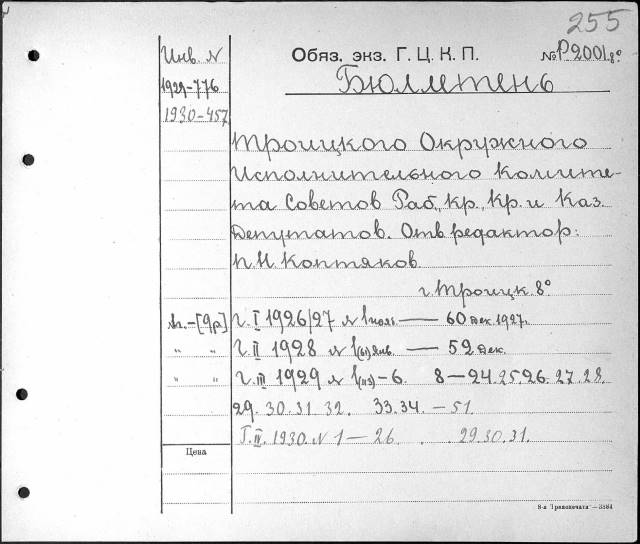 255
Инв. N
Обяз. экз. Г. Ц. К. П.
№ Р2001.8°
1929-776
Бюллетень
1930-457
Троицкого Окружного
Исполнительного Комите-
та Советов Раб., Кр., Кр. и Каз.
Депутатов. Отв. редактор:
П. И. Коптяков.
г. Троицк. 8°
г. I 1926/27 N 1 нояб. — 60 дек. 1927.
" " г. II 1928 N 1(61) янв. — 52 дек.
" " г. III 1929 N 1(113) - 6. 8 — 24. 25. 26. 27. 28.
29. 30. 31. 32. 33. 34. — 51.
Г. IV. 1930. N 1 — 26. . 29. 30. 31.
Цена